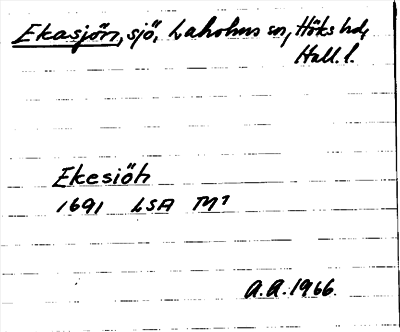 Ekasjön, sjö, Laholms sn, Höks hd,
Hall. l.
Ekesiöh
1691 LSA M1
A.A. 1966.